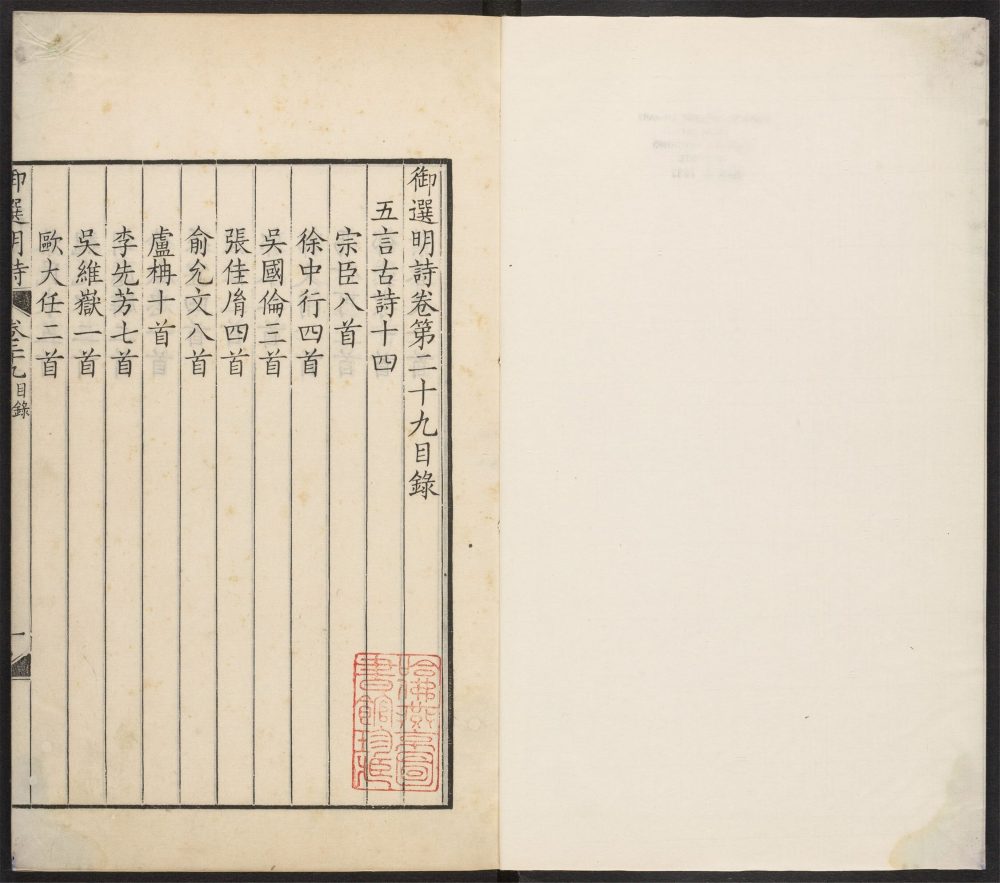 御選明詩卷第二十九目錄
五言古詩十四
宗臣八首
徐中行四首
吳國倫三首
張佳胤四首
俞允文八首
盧柟十首
李先芳七首
吳維嶽一首
歐大任二首
御選明詩 卷二十九目錄 一
哈佛燕京圖
書館珍藏